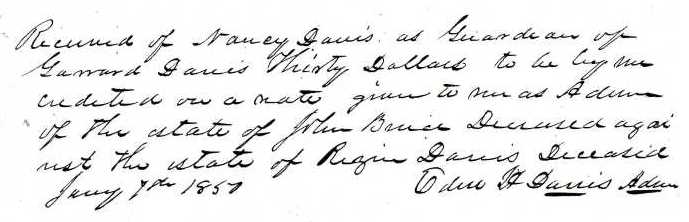 Received of Nancy Davis as Guardian of
Garrard Davis Thirty Dollars to be by me
credited on a note given to me as Admr
of the estate of John Bruce Deceased agai
nst the estate of Rezin Davis Deceased
Jany 7th 1850
H Davis Admr